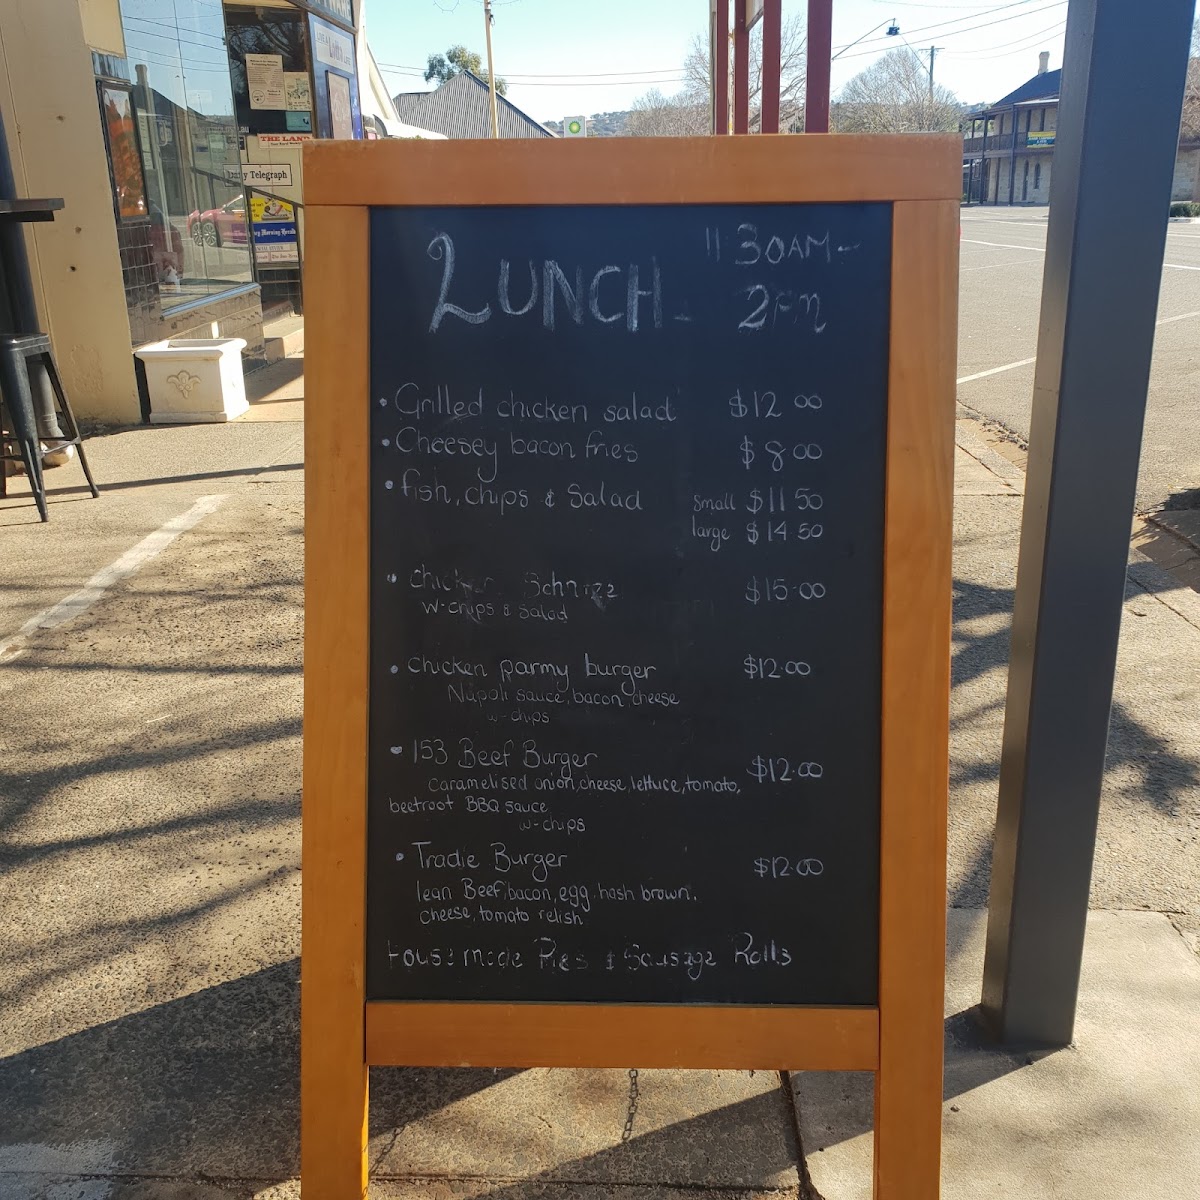 THE LAND
Daily Telegraph
LUNCH - 11 30AM -
2PM
• Grilled chicken salad $12 00
• Cheesey bacon fries $8 00
• fish, chips & Salad small $11 50
large $14 50
• chicken Schnitz $15.00
w-chips & Salad
• chicken parmy burger $12.00
Napoli sauce, bacon, cheese
w-chips
• 153 Beef Burger $12.00
caramelised onion, cheese, lettuce, tomato,
beetroot BBQ sauce
w-chips
• Tradie Burger $12.00
lean Beef, bacon, egg, hash brown,
cheese, tomato relish
House made Pies & Sausage Rolls